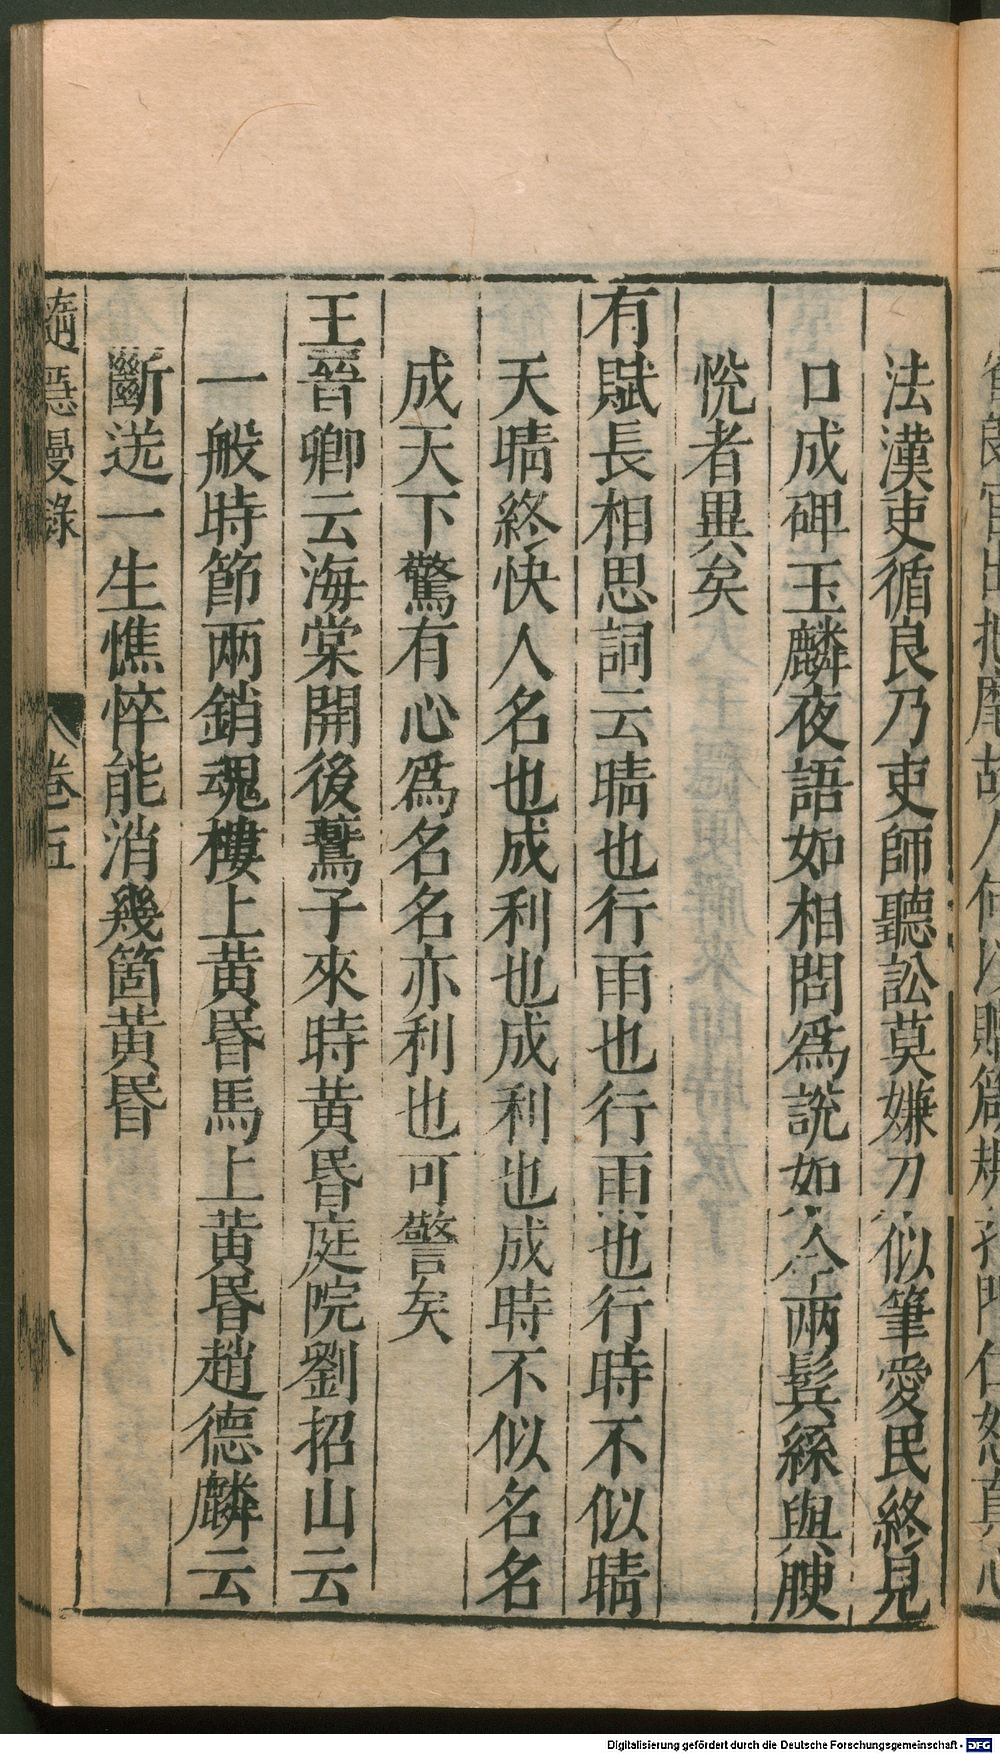 法漢吏循良乃吏師聽訟莫嫌刀似筆愛民終見
口成碑玉麟夜語如相問爲說如今兩鬂絲與腴
悅者異矣
有賦長相思詞云晴也行雨也行雨也行時不似晴
天晴終快人名也成利也成利也成時不似名名
成天下驚有心爲名名亦利也可警矣
王晉卿云海棠開後鷰子來時黃昏庭院劉招山云
一般時節兩銷魂樓上黃昏馬上黃昏趙德麟云
斷送一生憔悴能消幾箇黃昏
隨隱漫錄 卷五 八
Digitalisierung gefördert durch die Deutsche Forschungsgemeinschaft - DFG